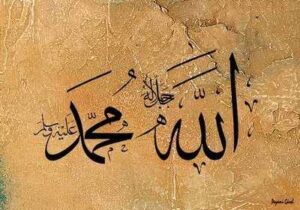 الله جل جلاله
محمد عليه وسلم